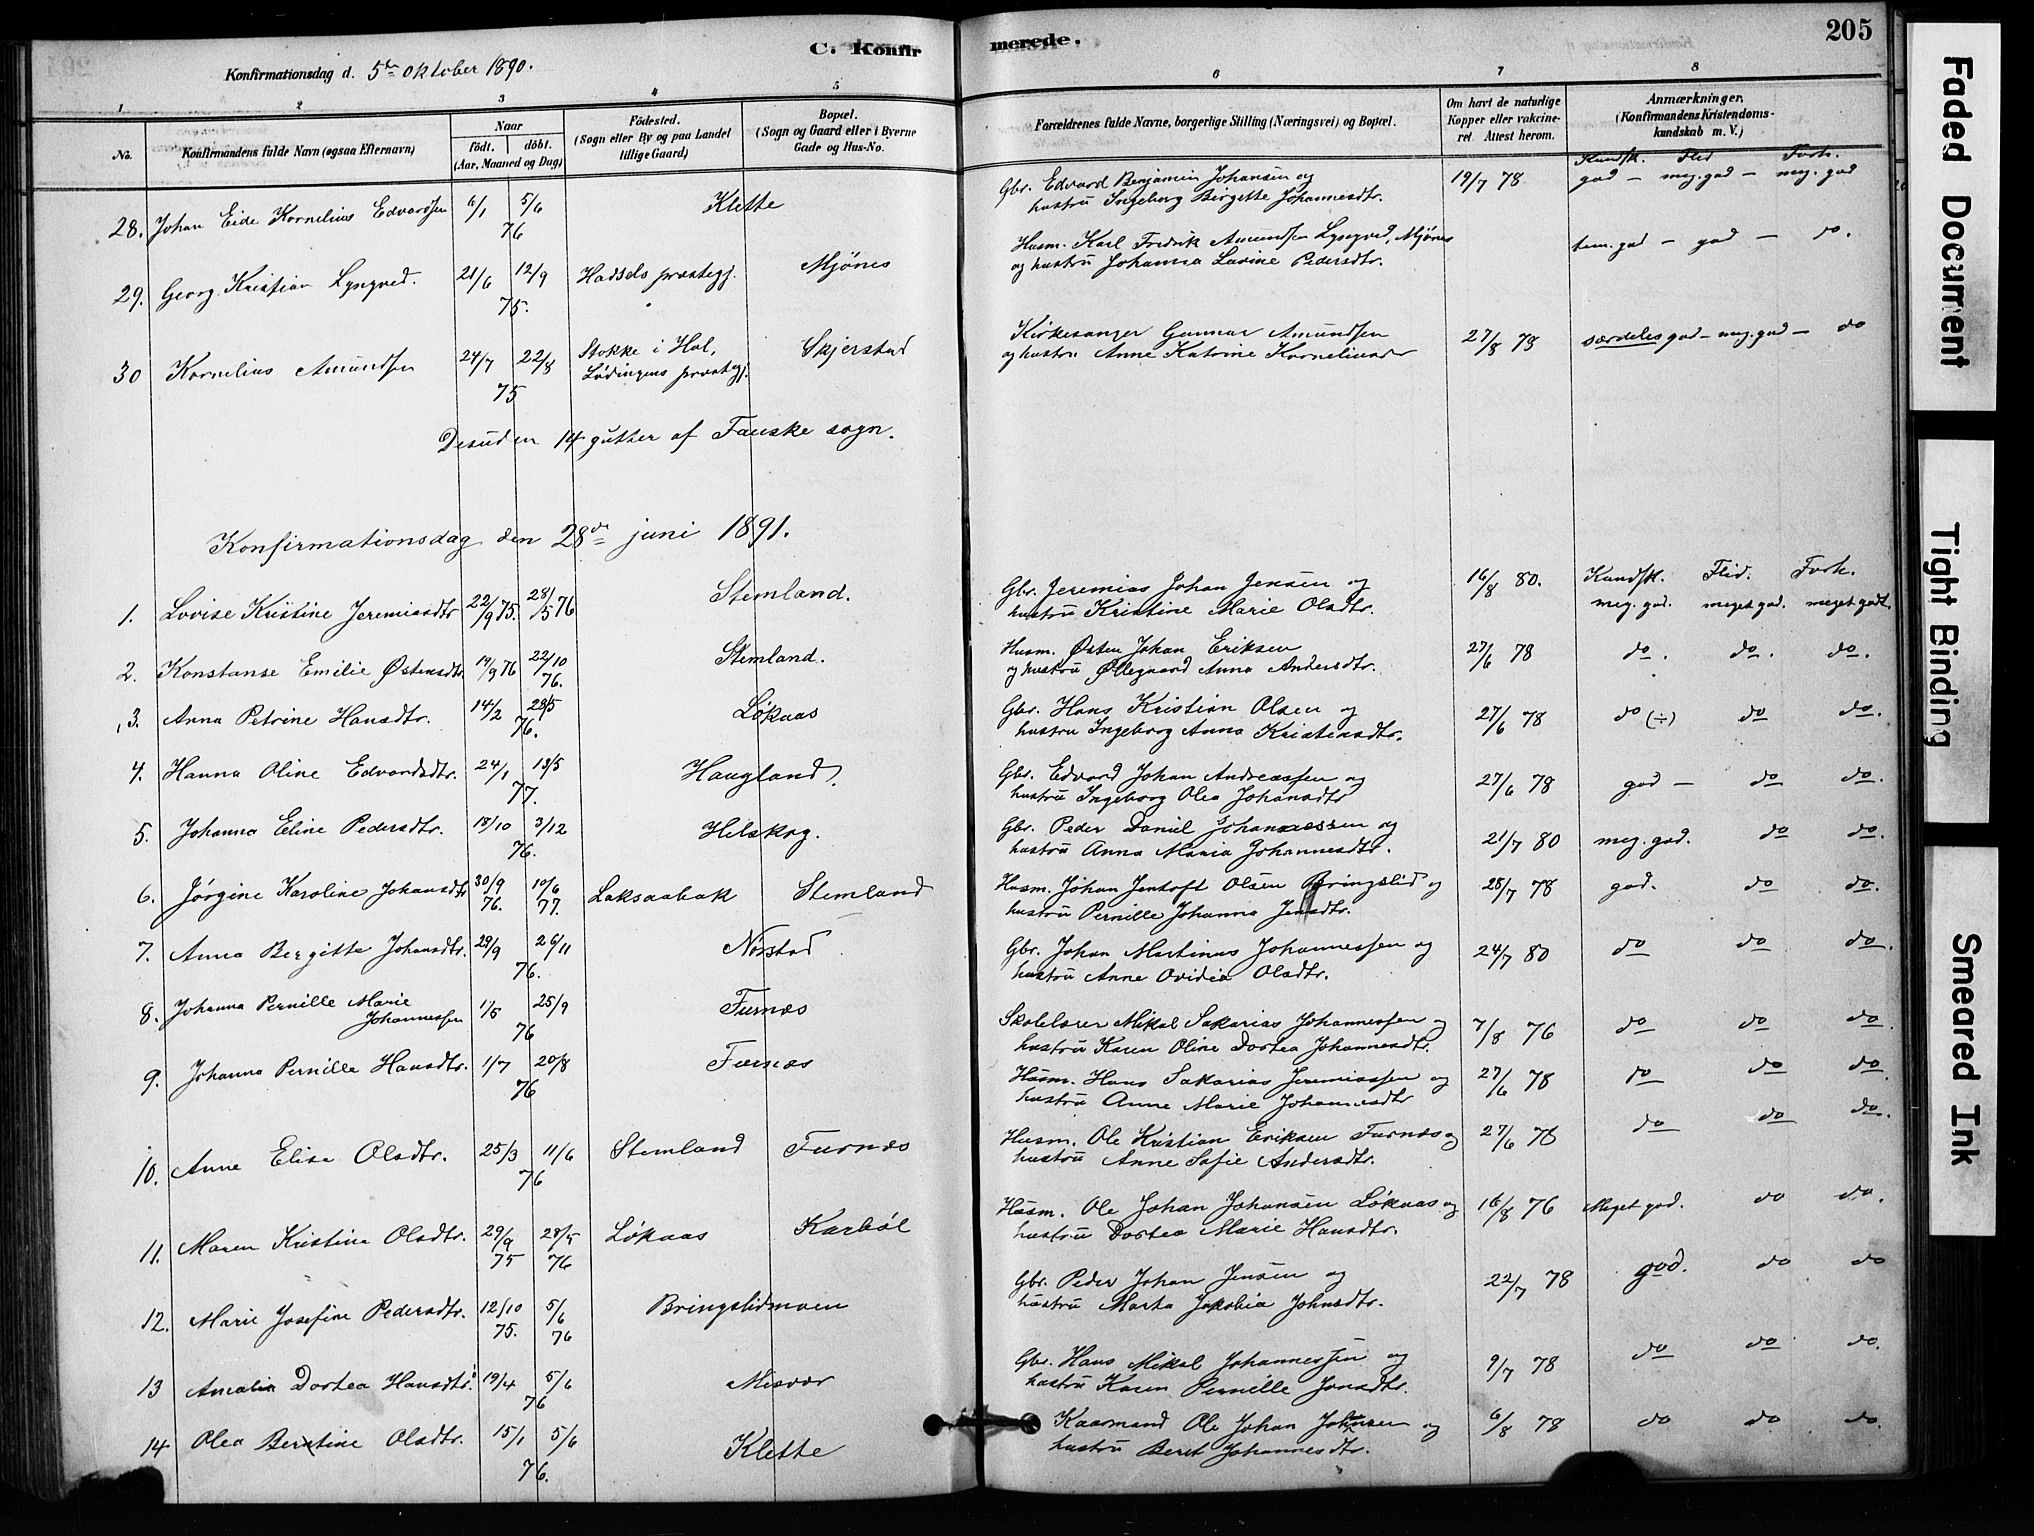 C. Konfirmerede.
205
Konfirmationsdag d. 5te oktober 1890.
1 2 3 4 5 6 7 8
No.
Konfirmandens fulde Navn (ogsaa Efternavn)
Naar
födt. döbt.
(Aar, Maaned og Dag)
Födested.
(Sogn eller By og paa Landet
tillige Gaard)
Bopæl.
(Sogn og Gaard eller i Byerne
Gade og Hus-No.
Forældrenes fulde Navne, borgerlige Stilling (Næringsvei) og Bopæl.
Om havt de naturlige
Kopper eller vakcine-
ret. Attest herom.
Anmærkninger.
(Konfirmandens Kristendoms-
kundskab m. V.)
Kundsk. Flid Forh.
28. Johan Eide Kornelius Edvardsen 6/1 5/6 76 Klette Gbr. Edvard Benjamin Johansen og 19/7 78 god – meg. god – meg. god
hustru Ingeborg Birgette Johannesdtr.
29. Georg Kristian Lyngved. 21/6 12/9 75. Hadsels præstegj. Mjönes Husm. Karl Fredrik Amundsen Lyngved, Mjönes tem. god – god – do.
og hustru Johanna Lavine Pedersdtr.
30 Kornelius Amundsen 24/7 22/8 75 Stokke i Hol, Skjerstad Kirkesanger Gunnar Amundsen 27/8 78 særdeles god – meg. god – do
Lødingens præstegj. og hustru Anne Katrine Korneliusdr
Desuden 14 gutter af Fauske sogn.
Konfirmationsdag den 28de juni 1891.
Kundsk. Flid. Forh.
1. Lovise Kristine Jeremiasdtr 22/9 75. 28/5 76 Stemland. Gbr. Jeremias Johan Jensen og 16/8 80. meg. god. meget god. meget godt.
hustru Kristine Marie Olsdtr.
2. Konstanse Emilie Østensdtr. 19/9 76 22/10 76. Stemland. Husm. Østen Johan Eriksen 27/6 78 do. do. do.
og hustru Øllegaard Anna Andersdtr.
3. Anna Petrine Hansdtr. 14/2 28/5 76. Løkaas Gbr. Hans Kristian Olsen og 27/6 78 do (÷) do do.
hustru Ingeborg Anna Kristensdtr.
4. Hanna Oline Edvardsdtr. 24/1 13/5 77. Haugland. Gbr. Edvard Johan Andreassen og 27/6 78 god – do do.
hustru Ingeborg Olea Johansdtr
5. Johanna Eline Pedersdtr. 18/10 3/12 76. Helskog. Gbr. Peder Daniel Johannessen og 21/7 80 meg. god. do do.
hustru Anna Maria Johannesdtr.
6. Jörgine Karoline Johansdtr 30/9 76. 10/6 77. Laksaabak Stemland Husm. Johan Jentoft Olsen Bringslid og 28/7 78 god. do do.
hustru Pernille Johanna Jensdtr.
7. Anna Bergitte Johansdtr. 29/9 26/11 76. Norstad Gbr. Johan Martinus Johannessen og 24/7 80 do do do.
hustru Anne Ovidia Olsdtr.
8. Johanna Pernille Marie Johannessen 1/5 25/9 76 Furnes Skolelærer Mikal Sakarias Johannessen og 7/8 76 do do do.
hustru Karen Oline Dortea Johannesdtr.
9. Johanna Pernille Hansdtr. 1/7 20/8 76 Furnes Husm. Hans Sakarias Jeremiassen og 27/6 78 do do do.
hustru Anne Marie Johannesdtr
10. Anne Elisa Olsdtr. 25/3 11/6 76 Stemland Furnes Husm. Ole Kristian Eriksen Furnes og 27/6 78 do do do.
hustru Anne Sofie Andersdtr.
11. Maren Kristine Olsdtr. 29/9 75 28/5 76 Løkaas Karbøl Husm. Ole Johan Johansen Løkaas og 16/8 76 Meget god. do do.
hustru Dortea Marie Hansdtr.
12. Marie Josefine Pedersdtr. 12/10 75. 5/6 76 Bringslidmoen Gbr. Peder Johan Jensen og 22/7 78 god. do do
hustru Marta Jakobia Johnsdtr.
13 Amalia Dortea Hansdtr. 19/4 5/6 76 Misvær Gbr. Hans Mikal Johannessen og 9/7 78 do do do.
hustru Karen Pernille Jonsdtr.
14 Olea Berntine Olsdtr. 15/1 5/6 76. Klette Kaarmand Ole Johan Johnsen og 6/8 78 do do do.
hustru Beret Johannesdtr.
Faded Document
Tight Binding
Smeared Ink